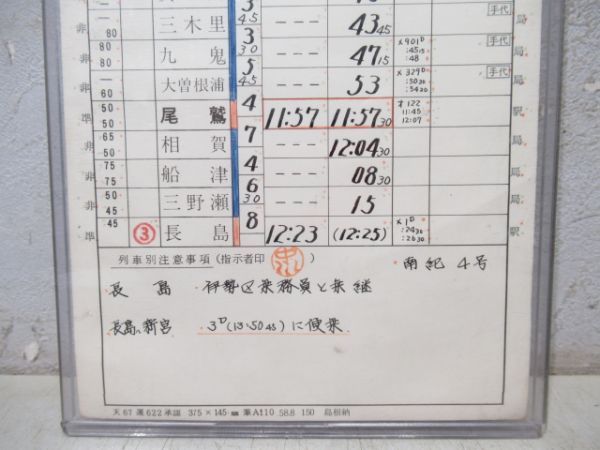 3 45
非 80 三木里 --- 43 45 手代 局
3 30
非 80 80 九鬼 --- 47 15 ×901D :45 15 :48 局
5 45
非 60 大曽根浦 --- 53 ×329D :50 30 :54 20 手代 局
4
準 50 50 尾鷲 11:57 11:57 30 オ122 11:45 12:07 駅
7
非 65 50 相賀 --- 12:04 30 局
4
非 75 75 船津 --- 08 30 局
6 30
非 50 45 三野瀬 --- 15 局
8
準 45 ③ 長島 12:23 (12:25) ×1D :24 30 :26 30 駅
列車別注意事項(指示者印 ) 南紀 4号
長島 伊勢区乗務員と乗継
長島〜新宮 3D(13:50 45)に便乗
天67運622承認 375×145㎜ 筆At10 58.8 150 島根納